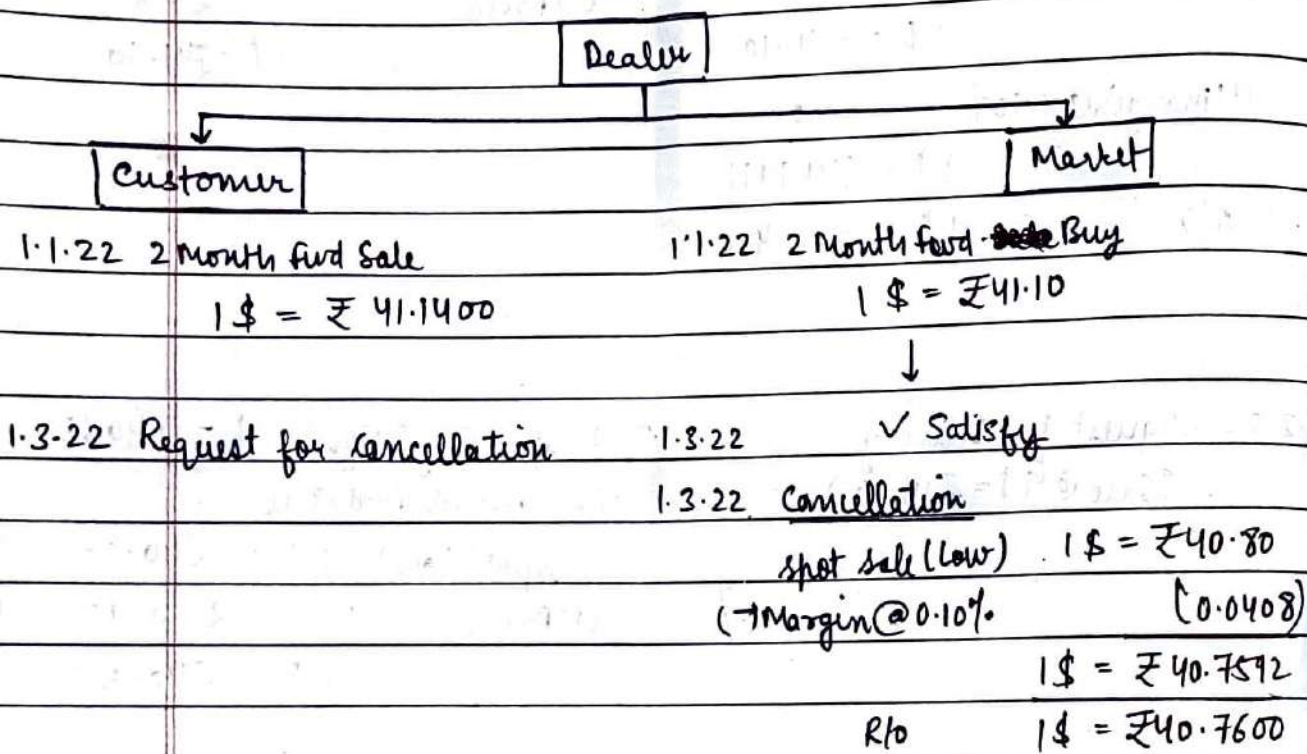 Dealer
Customer
Market
1.1.22 2 Month fwd Sale
1.1.22 2 Month fwd Buy
1 $ = ₹ 41.1400
1 $ = ₹41.10
1.3.22 Request for cancellation
1.3.22 ✓ Satisfy
1.3.22 Cancellation
spot sale (Low) 1 $ = ₹40.80
(-) Margin @ 0.10% (0.0408)
1 $ = ₹40.7592
R/o 1 $ = ₹40.7600